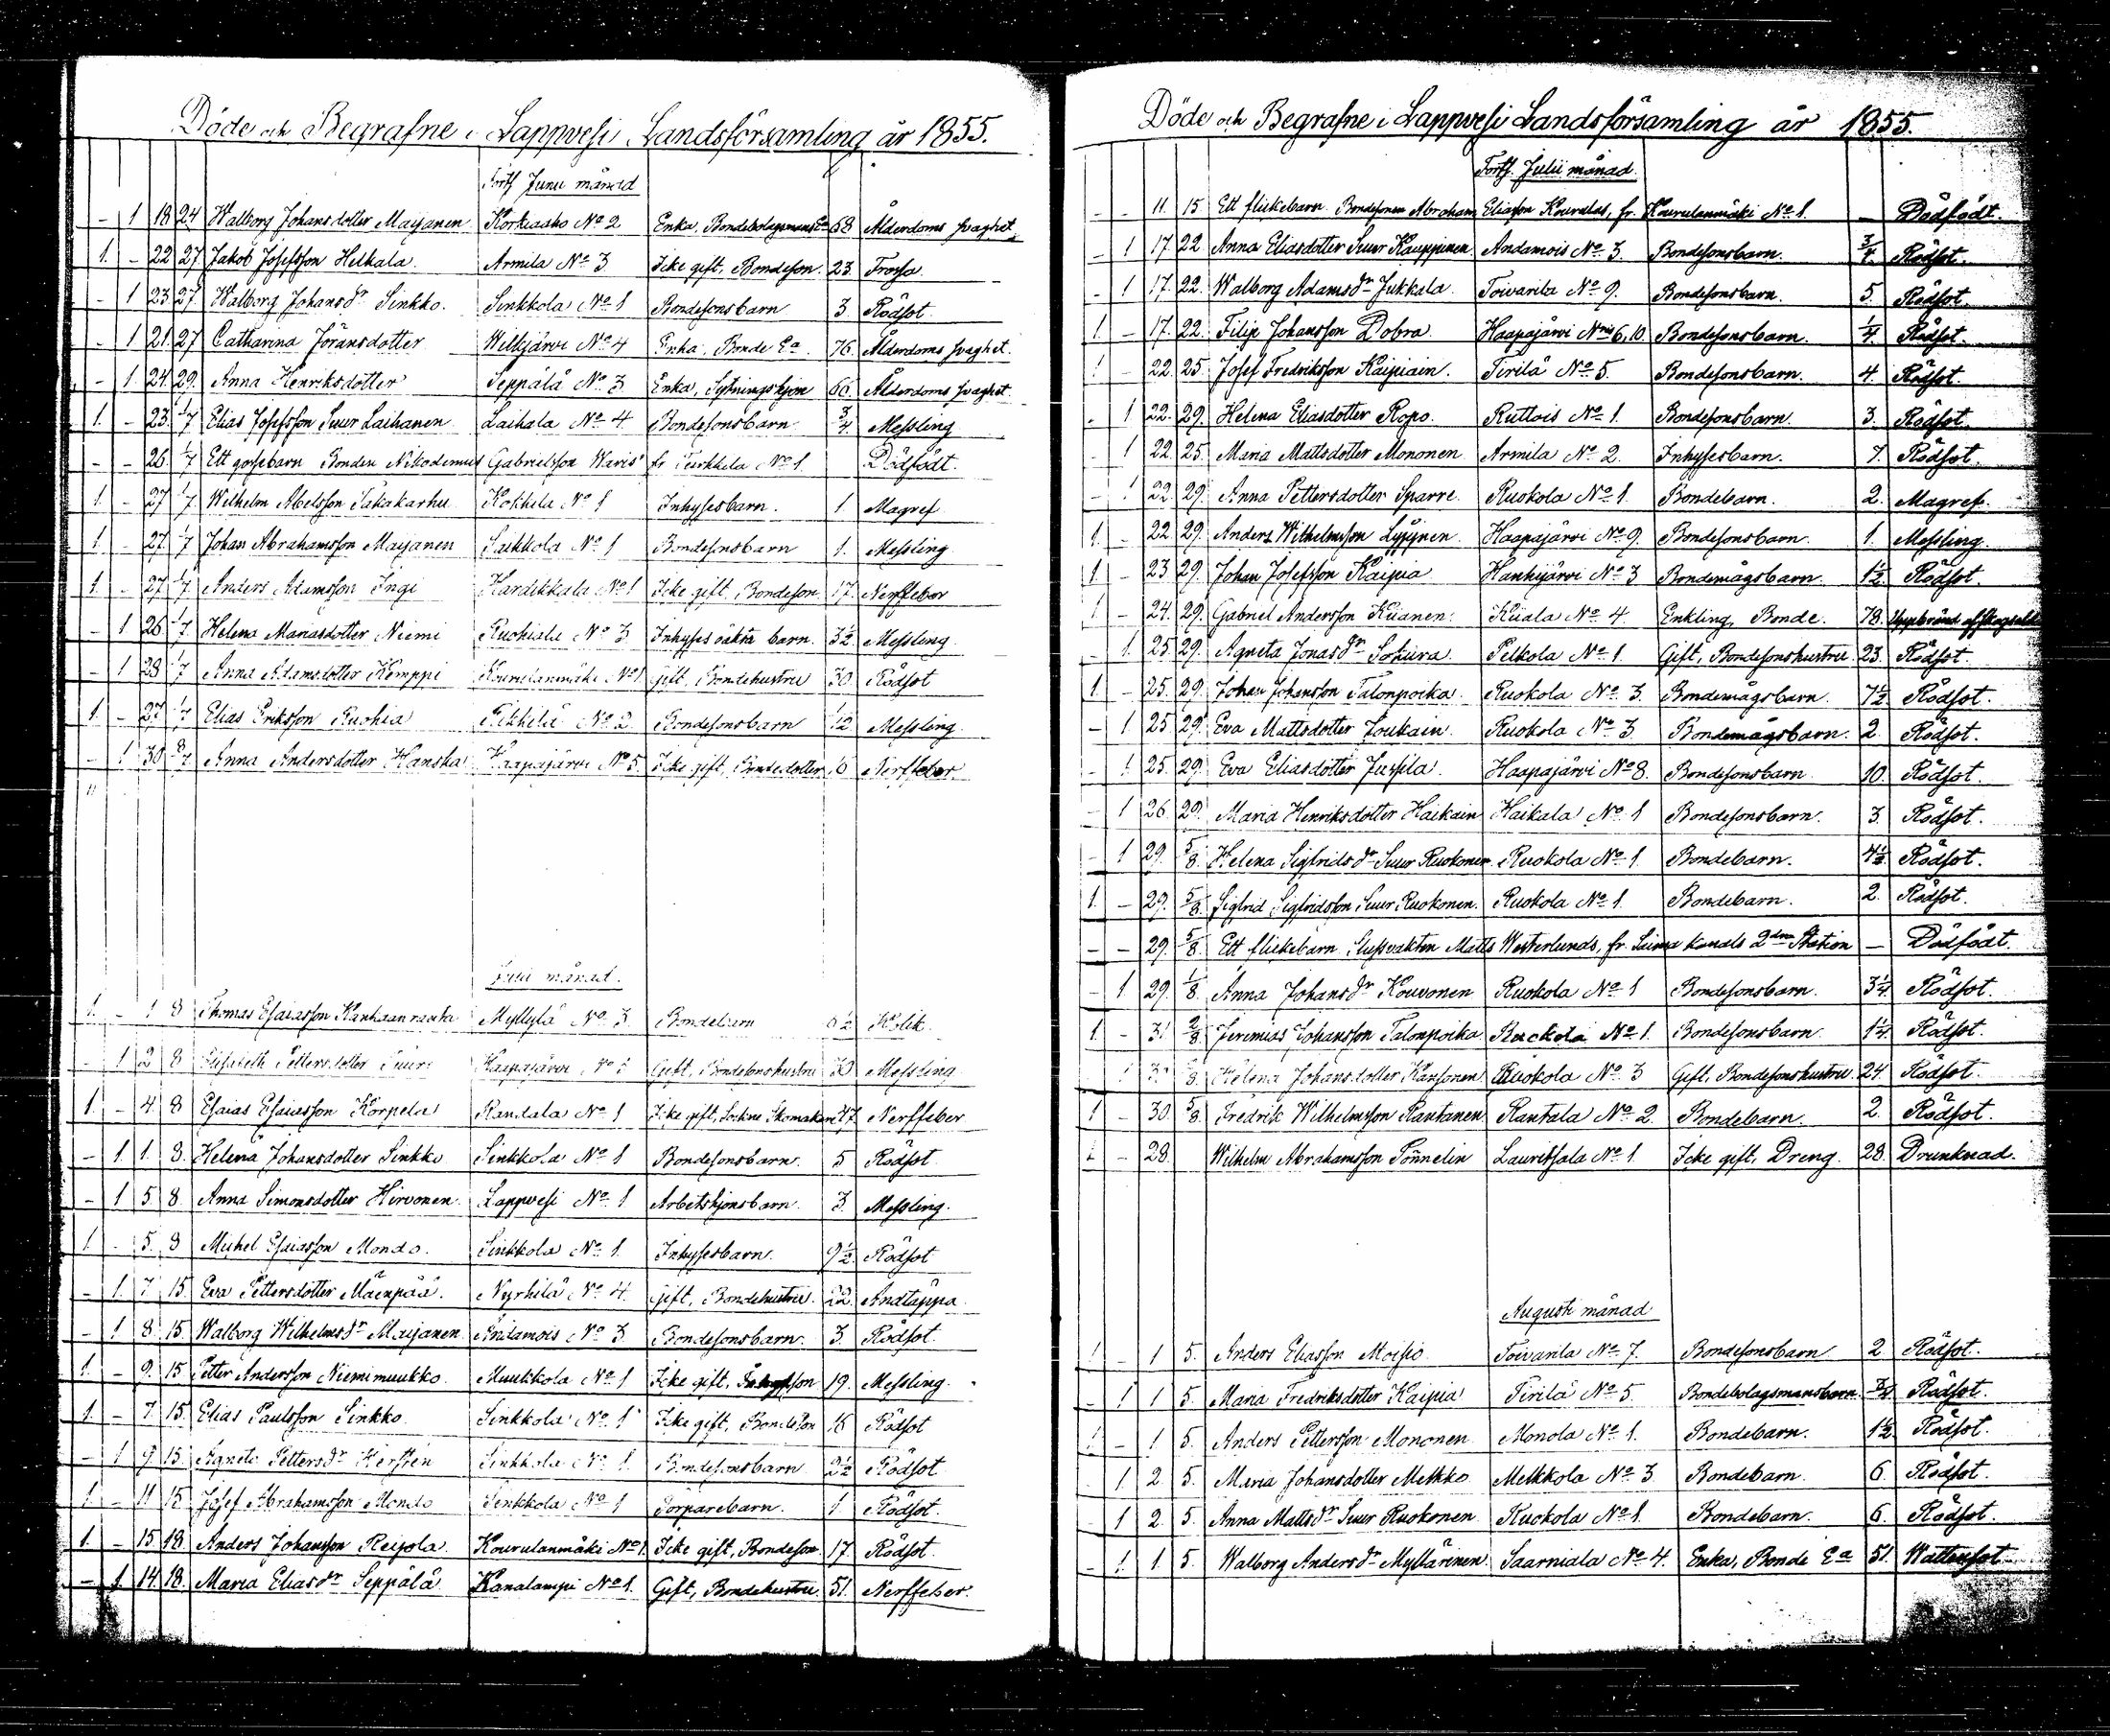 Döde och Begrafne i Lappvesi Landsförsamling år 1855.
Forts Junii månad
- 1 18 24 Walborg Johansdotter Maijanen Korkiaaho No 2 Enka, Bondebolagsmans Ea 68 Ålderdoms svaghet
1. - 22 27 Jakob Josefsson Helkala Armila No 3 Icke gift, Bondeson. 23 Frossa.
- 1 23 27 Walborg Johansdr Sinkko. Sinkkola No 1 Bondesonsbarn 3 Rödsot.
- 1 21 27 Catharina Jöransdotter Wilkjärvi No 4 Enka, Bonde Ea 76. Ålderdoms svaghet.
- 1 24 29. Anna Henriksdotter Seppälä No 3 Enka, Sytningshjon 66. Ålderdoms svaghet.
1. - 23. 1/7 Elias Josefsson Suur Laihanen Laihala No 4 Bondesonsbarn 3/4 Messling
- - 26. 1/7 Ett gossebarn Bonden Nikodemus Gabrielsson Waris' fr Turkkila No 1. Dödfödt.
1. - 27 1/7 Wilhelm Abelsson Takakarhu Kokkila No 1 Inhysesbarn. 1 Magref
1. - 27. 1/7 Johan Abrahamsson Maijanen Saikkola No 1 Bondesonsbarn 1. Messling.
1. - 27 1/7 Anders Adamsson Ingi Kardikkala No 1 Icke gift, Bondeson 17. Nerffeber
- 1 26 1/7. Helena Mariasdotter Niemi Ruohiala No 3 Inhyses oäkta barn. 3 1/2 Messling.
- 1 28 1/7 Anna Adamsdotter Kemppi Kourulanmäki No 1 Gift, Bondehustru 30. Rödsot
1. - 27 1/7 Elias Eriksson Ruohia Rikkilä No 2 Bondesonsbarn 1/12 Messling.
- 1 30 8/7 Anna Andersdotter Hanska Haapajärvi No 5. Icke gift, Bondedotter 16 Nerffeber.
Julii månad.
1. - 1 8 Thomas Esaiasson Kanhaanranta Myllylä No 3 Bondebarn 6 1/2 Kolik
- 1 2 8 Elisabeth Pettersdotter Suur Haapajärvi Gift, Bondesonshustru 30 Messling
1. - 4. 8 Esaias Esaiasson Korpela Randala No 1 Icke gift, Sockne Skomakare 27. Nerffeber
- 1. 1. 8. Helena Johansdotter Sinkko Sinkkola No 1 Bondesonsbarn. 5 Rödsot
- 1 5 8 Anna Simonsdotter Hirvonen. Lappvesi No 1 Arbetshjonsbarn. 3. Messling.
1. - 5. 8 Michel Esaiasson Mondo. Sinkkola No 1. Inhysesbarn. 9 1/2 Rödsot
- 1. 7. 15. Eva Pettersdotter Mäenpää. Nyrhilä No 4. Gift, Bondehustru. 22. Andtäppa.
- 1 8. 15. Walborg Wilhelmsdr Maijanen Andamois No 3. Bondesonsbarn. 3. Rödsot.
1. - 9. 15 Petter Andersson Niemimuukko. Muukkola No 1 Icke gift, Inhyseson 19. Messling.
1. - 7 15. Elias Paulsson Sinkko. Sinkkola No 1 Icke gift, Bondeson 16 Rödsot
- 1 9 15. Agneta Pettersdr Kersten Sinkkola No 1. Bondesonsbarn 2 1/2 Rödsot
1. - 11 15 Josef Abrahamsson Mondo Sinkkola No 1 Torparebarn. 1 Rödsot.
1. - 15. 18. Anders Johansson Reijola. Kourulanmäki No 1. Icke gift, Bondeson. 17. Rödsot.
- 1 14. 18. Maria Eliasdr Seppälä Kanalampi No 1. Gift, Bondehustru 51. Nerffeber.
Döde och Begrafne i Lappvesi Landsförsamling år 1855.
Forts. Julii månad.
- - 11. 15. Ett flickebarn. Bondesonen Abraham Eliasson Kourulas, fr. Kourulanmäki No 1. - Dödfödt.
- 1 17. 22 Anna Eliasdotter Suur Kauppinen Andamois No 3. Bondesonsbarn. 3/4. Rödsot.
- 1 17. 22. Walborg Adamsdr Jukkala. Toivarila No 9. Bondesonsbarn. 5. Rödsot
1 - 17. 22. Filip Johansson Dobra Haapajärvi Nris 6, 10. Bondesonsbarn. 1/4. Rödsot.
1 - 22. 25. Josef Fredriksson Kaipiain. Tirilä No 5. Bondesonsbarn. 4. Rödsot.
- 1 22. 29. Helena Eliasdotter Ropo. Ruttois No 1. Bondesonsbarn. 3. Rödsot.
- 1 22. 25. Maria Mattsdotter Mononen Armila No 2. Inhysesbarn. 7. Rödsot.
- 1 22. 29. Anna Pettersdotter Sparre. Ruokola No 1. Bondebarn. 2. Magref.
1. - 22. 29. Anders Wilhelmsson Lyijynen. Haapajärvi No 9. Bondesonsbarn. 1. Messling.
1. - 23 29. Johan Josefsson Kaipia Hanhijärvi No 3 Bondemågsbarn. 1 1/2. Rödsot.
1 - 24. 29. Gabriel Andersson Kiianen. Kiiala No 4. Enkling, Bonde. 78. Uppbränd af skogseld
- 1 25 29. Agneta Jonasdr Sohura. Pelkola No 1. Gift, Bondesonshustru 23. Rödsot.
1. - 25. 29. Johan Johansson Talonpoika. Ruokola No 3. Bondemågsbarn. 7 1/2. Rödsot.
- 1 25 29. Eva Mattsdotter Joukain. Ruokola No 3 Bondemågsbarn. 2. Rödsot.
- 1. 25. 29. Eva Eliasdotter Jussila. Haapajärvi No 8. Bondesonsbarn. 10. Rödsot.
- 1 26. 29. Maria Henriksdotter Haikain Haikala No 1 Bondesonsbarn. 3. Rödsot.
- 1 29. 5/8. Helena Sigfridsdr Suur Ruokonen. Ruokola No 1. Bondebarn. 4 1/2. Rödsot.
1. - 29. 5/8. Sigfrid Sigfridsson Suur Ruokonen. Ruokola No 1. Bondebarn. 2. Rödsot.
- - 29. 5/8. Ett flickebarn Slussvakten Matts Westerlunds, fr. Saima Kanals 2dra Station - Dödfödt.
- 1 29. 1/8. Anna Johansdr Kouvonen Ruokola No 1 Bondesonsbarn. 3 1/4. Rödsot.
1. - 31 2/8. Jeremias Johansson Talonpoika Ruokola No 1. Bondesonsbarn. 1 1/4. Rödsot.
Helena Johansdotter Kansonen Ruokola No 3 Gift, Bondesonshustru 24. Rödsot.
1 - 30 5/8. Fredrik Wilhelmsson Rantanen Rantala No 2. Bondebarn. 2. Rödsot.
1 - 28. Wilhelm Abrahamsson Tönnelin Lauritsala No 1. Icke gift, Dreng. 28. Drunknad.
Augusti månad
1 - 1 5. Anders Eliasson Moisio. Toivarila No 7. Bondesonsbarn 2 Rödsot.
- 1 1 5. Maria Fredriksdotter Kaipia Tirilä No 5. Bondebolagsmansbarn. 3/4. Rödsot.
1 - 1 5. Anders Pettersson Mononen Monola No 1. Bondebarn. 1 1/2. Rödsot.
- 1 2 5. Maria Johansdotter Melkko Melkkola No 3 Bondebarn. 6. Rödsot.
- 1 2. 5. Anna Mattsdr Suur Ruokonen Ruokola No 1. Bondebarn. 6. Rödsot.
- 1. 1 5. Walborg Andersdr Myllärinen. Saarniala No 4. Enka, Bonde Ea 51. Wattensot